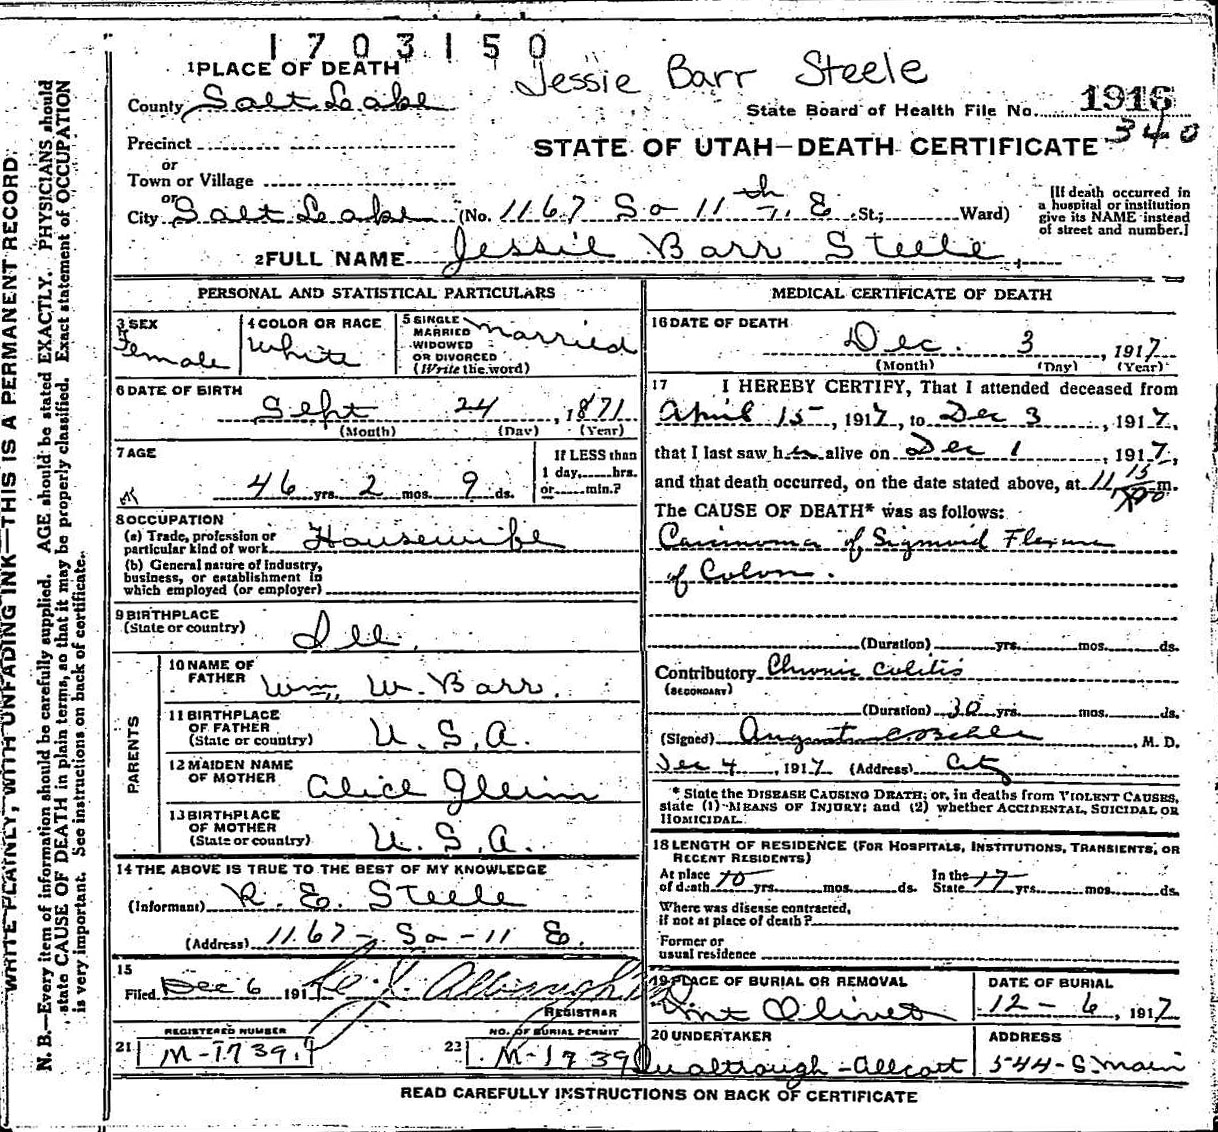 1703150
Jessie Barr Steele
1 PLACE OF DEATH
County Salt Lake
State Board of Health File No. 1916
340
Precinct
or
Town or Village
or
STATE OF UTAH—DEATH CERTIFICATE
City Salt Lake (No. 1167 So 11th E St.; Ward)
[If death occurred in
a hospital or institution
give its NAME instead
of street and number.]
2 FULL NAME Jessie Barr Steele
PERSONAL AND STATISTICAL PARTICULARS
3 SEX
Female
4 COLOR OR RACE
White
5 SINGLE
MARRIED
WIDOWED
OR DIVORCED
(Write the word)
Married
6 DATE OF BIRTH
Sept 24, 1871
(Month) (Day) (Year)
7 AGE
46 yrs. 2 mos. 9 ds.
If LESS than
1 day,......hrs.
or......min.?
8 OCCUPATION
(a) Trade, profession or
particular kind of work Housewife
(b) General nature of industry,
business, or establishment in
which employed (or employer)
9 BIRTHPLACE
(State or country) Ill.
PARENTS
10 NAME OF
FATHER Wm. W. Barr.
11 BIRTHPLACE
OF FATHER
(State or country) U. S. A.
12 MAIDEN NAME
OF MOTHER Alice Gleim
13 BIRTHPLACE
OF MOTHER
(State or country) U. S. A.
14 THE ABOVE IS TRUE TO THE BEST OF MY KNOWLEDGE
(Informant) R. E. Steele
(Address) 1167 - So - 11 E.
15
Filed Dec 6 191
REGISTRAR
REGISTERED NUMBER
21 M-1739
NO. OF BURIAL PERMIT
22 M-1739
MEDICAL CERTIFICATE OF DEATH
16 DATE OF DEATH
Dec. 3, 1917
(Month) (Day) (Year)
17 I HEREBY CERTIFY, That I attended deceased from
April 15, 1917, to Dec 3, 1917,
that I last saw her alive on Dec 1, 1917,
and that death occurred, on the date stated above, at 11 15 m.
The CAUSE OF DEATH* was as follows:
Carcinoma of Sigmoid Flexure
of Colon.
(Duration) yrs. mos. ds.
Contributory Chronic Colitis
(SECONDARY)
(Duration) 30 yrs. mos. ds.
(Signed) August M. D.
Dec 4, 1917 (Address) City
* State the DISEASE CAUSING DEATH; or, in deaths from VIOLENT CAUSES,
state (1) MEANS OF INJURY; and (2) whether ACCIDENTAL, SUICIDAL OR
HOMICIDAL.
18 LENGTH OF RESIDENCE (FOR HOSPITALS, INSTITUTIONS, TRANSIENTS, OR
RECENT RESIDENTS)
At place
of death 10 yrs. mos. ds.
In the
State 17 yrs. mos. ds.
Where was disease contracted,
if not at place of death?
Former or
usual residence
19 PLACE OF BURIAL OR REMOVAL
Mt Olivet
DATE OF BURIAL
12 - 6, 1917
20 UNDERTAKER
ADDRESS
544 - S. Main
READ CAREFULLY INSTRUCTIONS ON BACK OF CERTIFICATE
WRITE PLAINLY, WITH UNFADING INK—THIS IS A PERMANENT RECORD.
N. B.—Every item of information should be carefully supplied. AGE should be stated EXACTLY. PHYSICIANS should
state CAUSE OF DEATH in plain terms, so that it may be properly classified. Exact statement of OCCUPATION
is very important. See instructions on back of certificate.